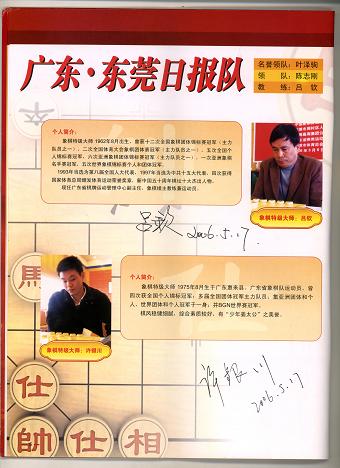 广东·东莞日报队
名誉领队：叶泽驹
领 队：陈志刚
教 练：吕 钦
个人简介：
象棋特级大师 1962年8月出生，曾获十二次全国象棋团体锦标赛冠军（主力
队员之一），二次全国体育大会象棋团体赛冠军（主力队员之一），五次全国个
人锦标赛冠军，六次亚洲象棋团体锦标赛冠军（主力队员之一），一次亚洲象棋
名手赛冠军，五次世界象棋锦标赛个人和团体冠军。
1993年当选为第八届全国人大代表，1997年当选为中共十五大代表，四次获得
国家体育总局颁发体育运动荣誉奖章，新中国五十周年棋坛十大杰出人物。
现任广东省棋牌运动管理中心副主任、象棋棋主教练兼运动员。
象棋特级大师：吕钦
吕钦 2006.5.17.
个人简介：
象棋特级大师 1975年8月生于广东惠来县，广东省象棋队运动员，曾
四次获全国个人锦标冠军；多届全国团体冠军主力队员，集亚洲团体和个
人、世界团体和个人冠军于一身，并BGN世界赛冠军。
棋风稳健细腻，综合素质较好，有“少年姜太公”之美誉。
象棋特级大师：许银川
许银川
2006.5.17
馬
仕
帥 仕 相